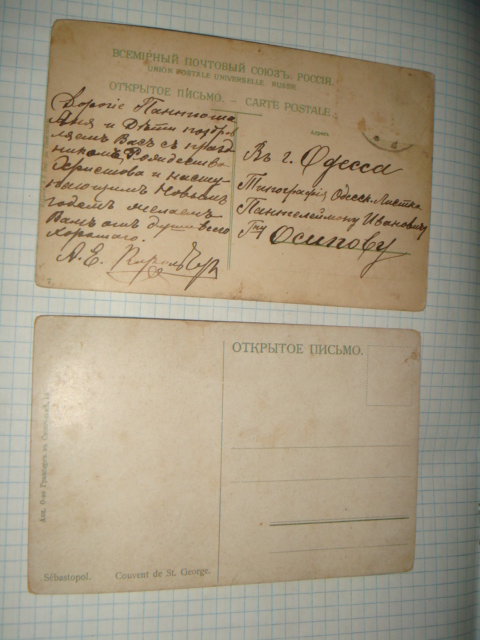 ВСЕМІРНЫЙ ПОЧТОВЫЙ СОЮЗЪ. РОССІЯ.
UNION POSTALE UNIVERSELLE. RUSSIE.
ОТКРЫТОЕ ПИСЬМО. — CARTE POSTALE.
Дорогіе Пантюша
Аня и Дѣти поздрав
ляемъ Васъ съ празд
никомъ Рождества
Христова и насту
пающимъ Новымъ
годомъ желаемъ
Вамъ отъ души всего
хорошаго.
А. Е.
Адресъ.
Въ г. Одесса
Типографія Одесск. Листка
Пантелеймону Ивановичу
Гну Осипову
ОТКРЫТОЕ ПИСЬМО.
Sébastopol. Couvent de St. George.